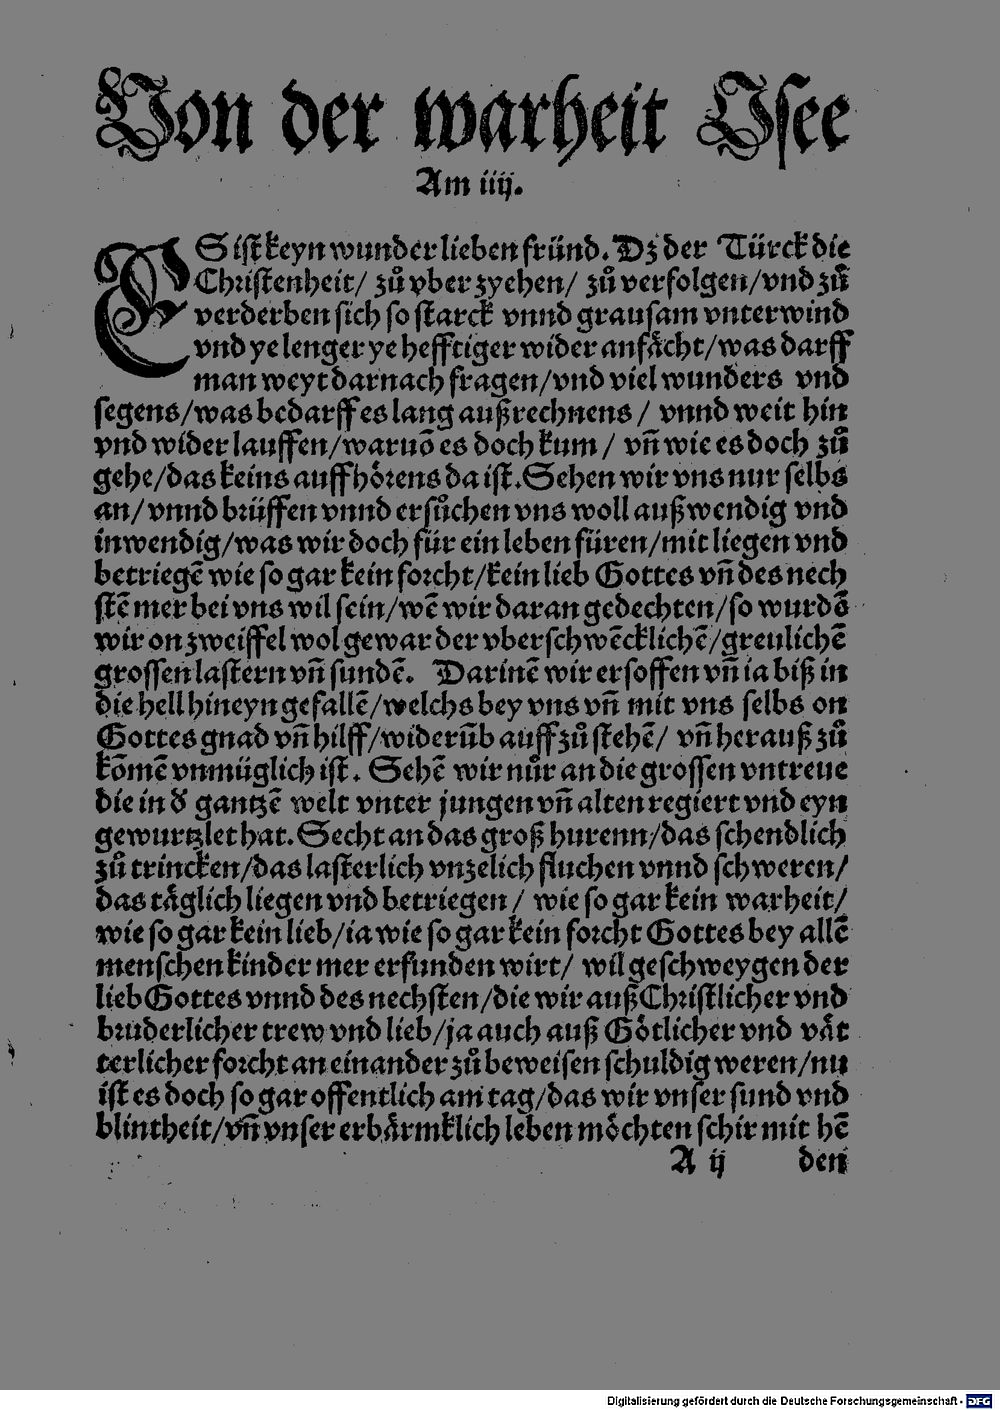 Von der warheit Osee
Am iiij.
ES ist keyn wunder lieben fründ. Dz der Türck die
Christenheit/ zů vber zyehen/ zů verfolgen/vnd zů
verderben sich so starck vnnd grausam vnterwind
vnd ye lenger ye hefftiger wider anfächt/was darff
man weyt darnach fragen/vnd viel wunders vnd
segens/was bedarff es lang außrechnens / vnnd weit hin
vnd wider lauffen/waruō es doch kum / vn̄ wie es doch zů
gehe/das keins auffhörens da ist. Sehen wir vns nur selbs
an/ vnnd brüffen vnnd ersůchen vns woll außwendig vnd
inwendig/was wir doch für ein leben füren/mit liegen vnd
betriegē wie so gar kein forcht/kein lieb Gottes vn̄ des nech
stē mer bei vns wil sein/wē wir daran gedechten/so wurdē
wir on zweiffel wol gewar der vberschwēcklichē/greulichē
grossen lastern vn̄ sundē. Darinē wir ersoffen vn̄ ia biß in
die hell hineyn gefallē/welchs bey vns vn̄ mit vns selbs on
Gottes gnad vn̄ hilff/widerūb auff zů stehē/ vn̄ herauß zů
kōmē vnmüglich ist. Sehē wir nůr an die grossen vntreue
die in d̕ gantzē welt vnter jungen vn̄ alten regiert vnd eyn
gewurtzlet hat. Secht an das groß hurenn/das schendlich
zů trincken/das lasterlich vnzelich fluchen vnnd schweren/
das täglich liegen vnd betriegen / wie so gar kein warheit/
wie so gar kein lieb/ia wie so gar kein forcht Gottes bey allē
menschen kinder mer erfunden wirt/ wil geschweygen der
lieb Gottes vnnd des nechsten/die wir auß Christlicher vnd
bruderlicher trew vnd lieb/ja auch auß Götlicher vnd vät
terlicher forcht an einander zů beweisen schuldig weren/nu
ist es doch so gar offentlich am tag/das wir vnser sund vnd
blintheit/vn̄ vnser erbärmklich leben möchten schir mit hē
A ij den
Digitalisierung gefördert durch die Deutsche Forschungsgemeinschaft - DFG